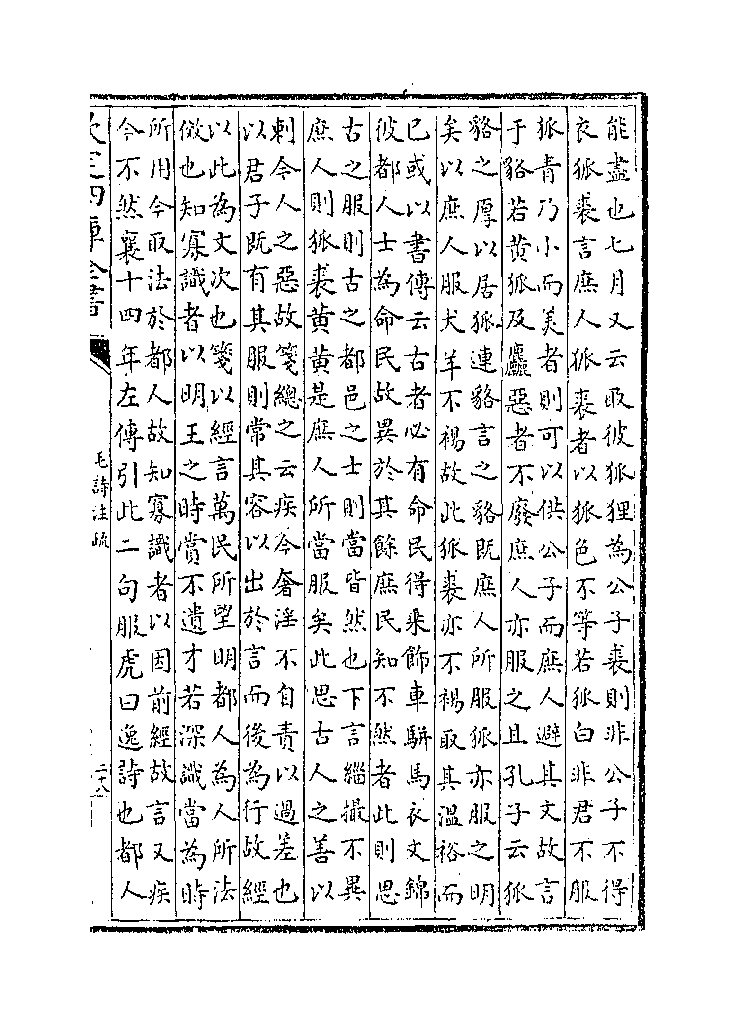 能盡也七月又云取彼狐狸為公子裘則非公子不得
衣狐裘言庶人狐裘者以狐色不等若狐白非君不服
狐青乃小而美者則可以供公子而庶人避其文故言
于貉若黄狐及麤惡者不廢庶人亦服之且孔子云狐
貉之厚以居狐連貉言之貉既庶人所服狐亦服之明
矣以庶人服犬羊不裼故此狐裘亦不裼取其溫裕而
已或以書傳云古者必有命民得乗飾車駢馬衣文錦
彼都人士為命民故異於其餘庶民知不然者此則思
古之服則古之都邑之士則當皆然也下言緇撮不異
庶人則狐裘黄黄是庶人所當服矣此思古人之善以
刺今人之惡故箋總之云疾今奢淫不自責以過差也
以君子既有其服則常其容以出於言而後為行故經
以此為文次也箋以經言萬民所望明都人為人所法
倣也知寡識者以明王之時賞不遺才若深識當為時
所用今取法於都人故知寡識者以因前經故言又疾
今不然襄十四年左傳引此二句服虔曰逸詩也都人
欽定四庫全書
毛詩注疏